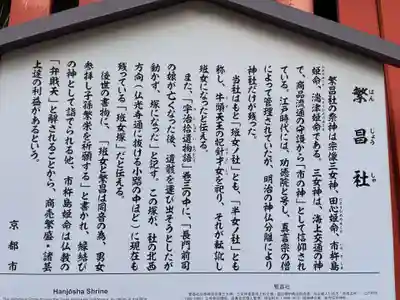 繁昌社
はん じょう しゃ
繁昌社の祭神は宗像三女神、田心姫命、市杵島
姫命、湍津姫命である。三女神は、海上交通の神
で、商品流通の守護から「市の神」として信仰され
ている。江戸時代には、功徳院と号し、真言宗の僧
によって管理されていたが、明治の神仏分離により
神社だけが残った。
当社はもと「班女ノ社」とも、「半女ノ社」とも
称し、牛頭天王の妃針才女を祀り、それが転訛し
班女になったと伝える。
また、「宇治拾遺物語」巻三の中に、「長門前司
の娘が亡くなった後、遺骸を運び出そうとしたが
動かず、塚になった」と記す。この塚が、社の北西
方向(仏光寺通に抜ける小路の中ほど)に現在も
残っている「班女塚」だと伝える。
後世の書物に、「班女と繁昌は同音の為、男女
参拝し子孫繁栄を祈願する」と書かれ、縁結び
の神として詣でられる他、市杵島姫命は仏教の
「弁財天」と解されることから、商売繁盛・諸芸
上達の利益があるという。
京都市
Hanjōsha Shrine
繁昌社